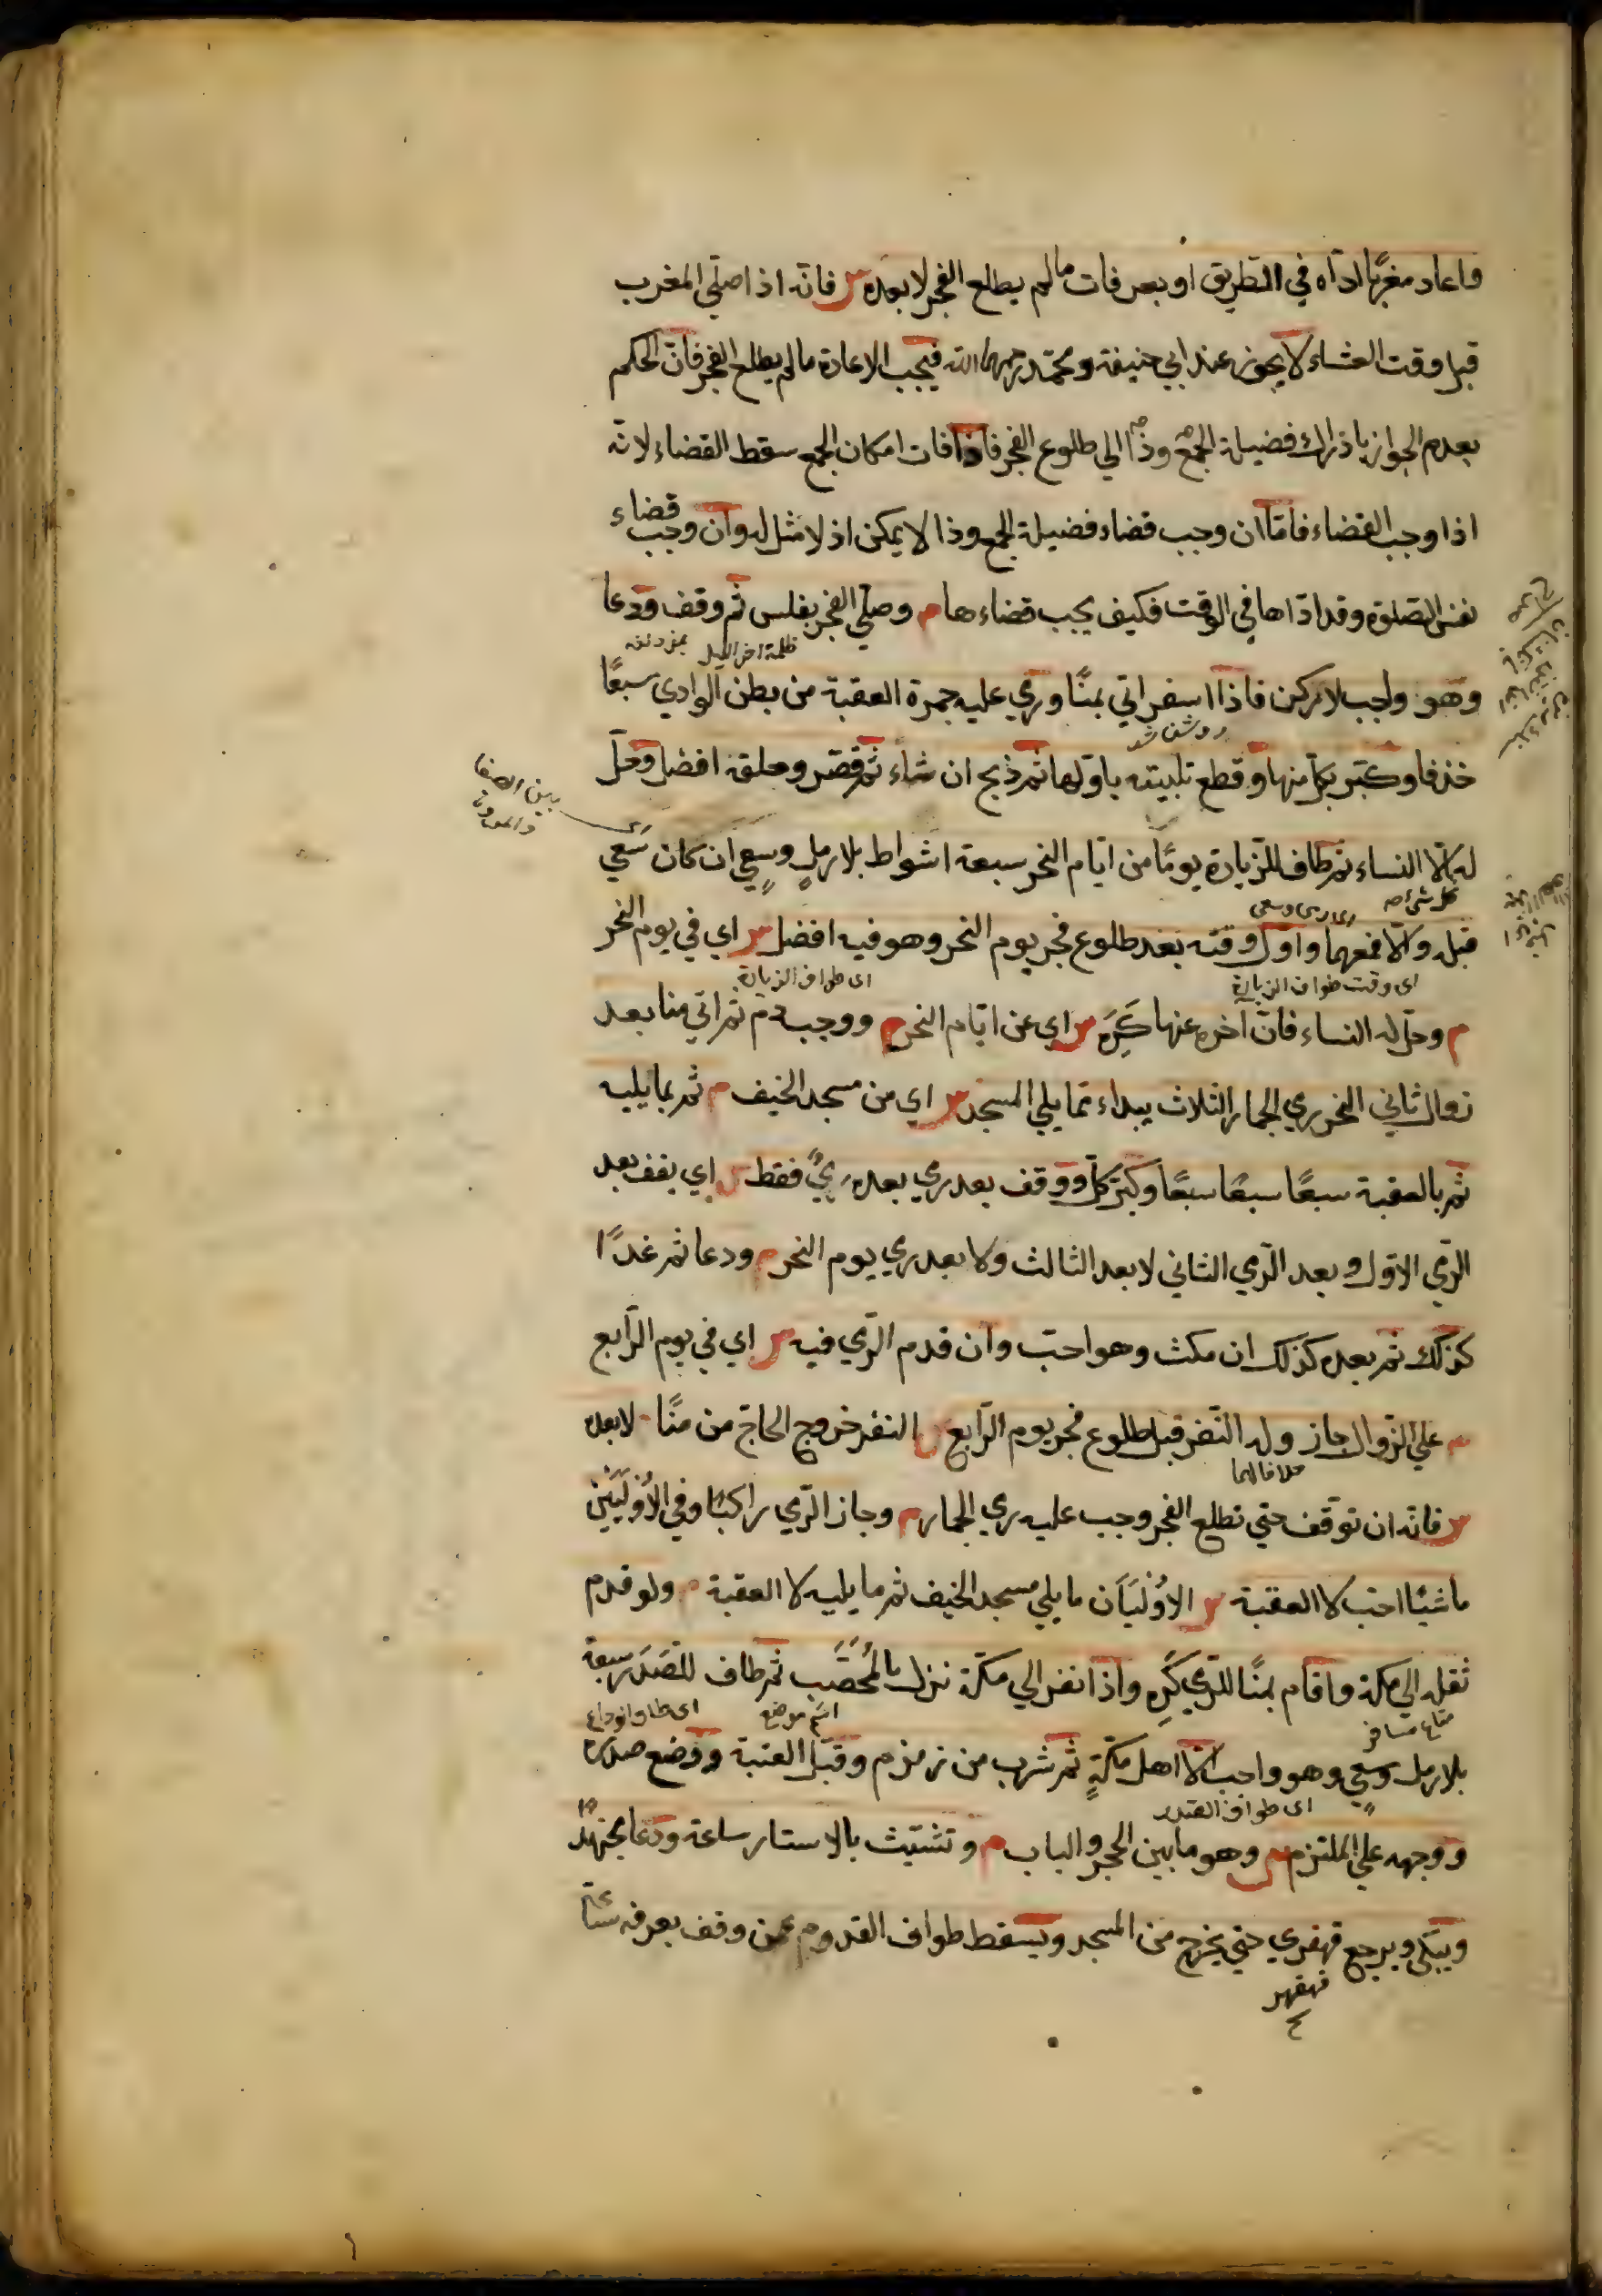 واعاد مغربًا اداه في الطريق او بعرفات ما لم يطلع الفجر لا بعده س فانّه اذا صلّي المغرب
قبل وقت العشاء لا يجوز عند ابي حنيفة ومحمّد رحمهما الله فيجب الاعادة ما لم يطلع الفجر فانّ الحكم
بعدم الجواز لادراك فضيلة الجمع وذا الي طلوع الفجر فاذا فات امكان الجمع سقط القضاء لانّه
اذا وجب القضاء فامّا ان وجب قضاء فضيلة الجمع وذا لا يمكن اذ لا مثل له وان وجب قضاء
نفس الصّلوة وقد ادّاها في الوقت فكيف يجب قضاءها م وصلّي الفجر بغلس ثم وقف ودعا
ظلمة اخر الليل
بمزدلفه
وهو واجب لا ركن فاذا اسفر اتي بمنًا ورمي عليه جمرة العقبة من بطن الوادي سبعًا
روشن شد
خذفا وكبّر بكلّ منها وقطع تلبيته باوّلها ثم ذبح ان شاء ثم قصّر وحلقه افضل وحلّ
بين الصفا
والمروة
له الّا النساء ثم طاف للزّيارة يومًا من ايّام النحر سبعة اشواط بلا رملٍ وسعيٍ ان كان سَعي
كل شيء
اي رمل وسعي
قبل والّا فمعهما واوّل وقته بعد طلوع فجر يوم النحر وهو فيه افضل س اي في يوم النحر
اي وقت طواف الزيارة
اي طواف الزيارة
م وحلّ له النساء فان اخره عنها كَرِهَ س اي عن ايّام النحر م ووجب دم ثم اتي منا بعد
زوال ثاني النحر رمي الجمار الثلاث يبداء ممّا يلي المسجد س اي من مسجد الخيف م ثم بما يليه
ثم بالعقبة سبعًا سبعًا سبعًا وكبّر بكلّ ووقف بعد رمي بعده رميٌ فقط س اي يقف بعد
الرّمي الاوّل وبعد الرّمي الثاني لا بعد الثالث ولا بعد رمي يوم النحر م ودعا ثم غدًا
كذلك ثم بعده كذلك ان مكث وهو احبّ وان قدم الرّمي فيه س اي في يوم الرّابع
م علي الزّوال جاز وله النّفر قبل طلوع فجر يوم الرّابع س النفر خروج الحاجّ من منًا م لا بعده
خلافا لهما
س فانّه ان توقّف حتي تطلع الفجر وجب عليه رمي الجمار م وجاز الرّمي راكبًا وفي الاُوْلَيَيْنِ
ماشيًا احبّ لا العقبة س الاُوْلَيَان ما يلي مسجد الخيف ثم ما يليه لا العقبة م ولو قدم
ثقله الي مكة واقام بمنًا للرّمي كَرِه واذا نفر الي مكّة نزل بالمُحَصَّب ثم طاف للصَدَر سبعة
متاع مسافر
اسم موضع
اي طواف الوداع
بلا رمل وسعيٍ وهو واجب الّا اهل مكّةٍ ثم شرب من زمزم وقبّل العتبة ووضع صدره
اي طواف الصدر
ووجهه علي الملتزم س وهو ما بين الحجر والباب م وتشبّث بالاستار ساعة ودعا مجتهدًا
ويبكي ويرجع قهقري حتي يخرج من المسجد ويسقط طواف القدوم عمن وقف بعرفه ساعة
قهقهر